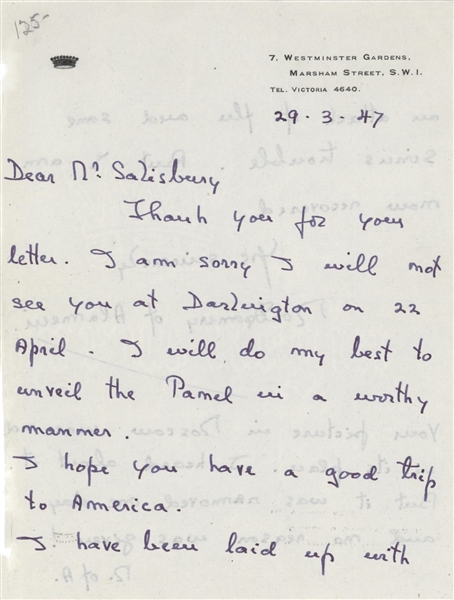 125-
7. Westminster Gardens,
Marsham Street, S.W.1.
Tel. Victoria 4640.
29 . 3 . 47
Dear Mr. Salisbury
Thank you for your
letter. I am sorry I will not
see you at Darlington on 22
April. I will do my best to
unveil the Panel in a worthy
manner.
I hope you have a good trip
to America.
I have been laid up with